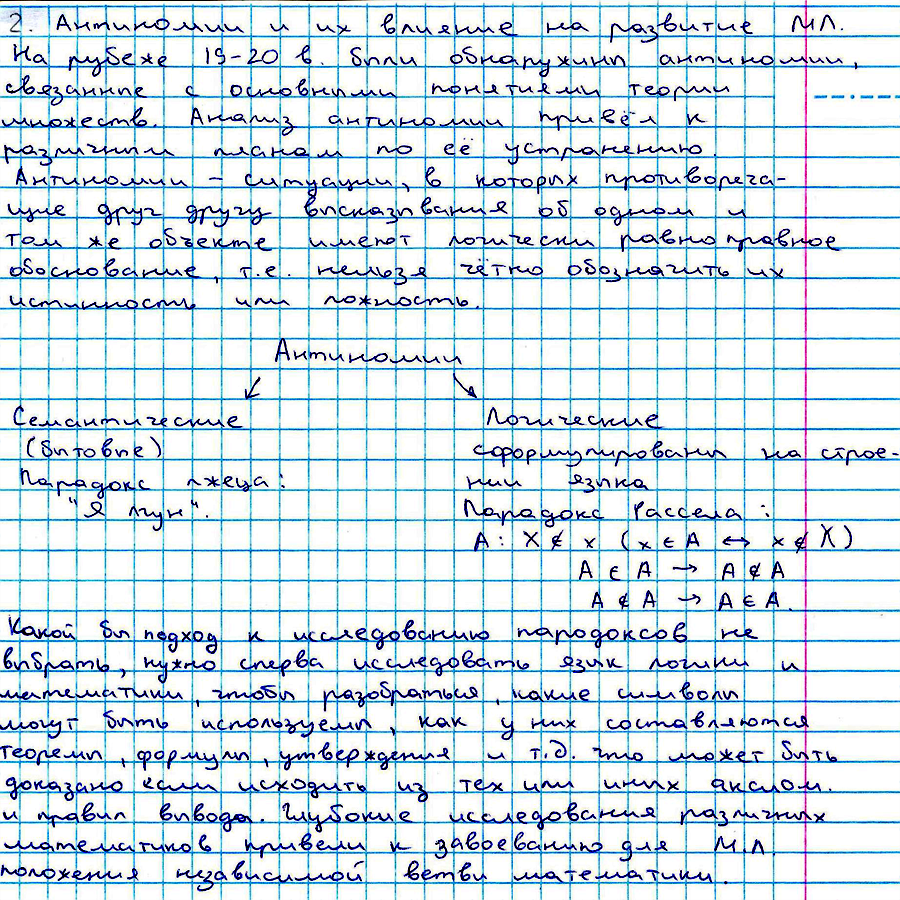 2. Антиномии и их влияние на развитие МЛ.
На рубеже 19-20 в. были обнаружины антиномии,
связанные с основными понятиями теории
множеств. Анализ антиномии привёл к
различным планам по её устранению.
Антиномии – ситуации, в которых противореча-
щие друг другу высказывания об одном и
том же объекте имеют логически равноправное
обоснование, т.е. нельзя чётко обозначить их
истинность или ложность.
Антиномии
↙ ↘
Семантические Логические
(бытовые) сформулированы на строе-
Парадокс лжеца: нии языка
"Я лгун". Парадокс Рассела:
A: X ∉ x (x ∈ A ↔ x ∉ X)
A ∈ A → A ∉ A
A ∉ A → A ∈ A.
Какой бы подход к исследованию пародоксов не
выбрать, нужно сперва исследовать язык логики и
математики, чтобы разобраться, какие символы
могут быть используемы, как у них составляются
теоремы, формулы, утверждения и т.д. что может быть
доказано если исходить из тех или иных аксиом.
и правил вывода. Глубокие исследования различных
математиков привели к завоеванию для М.Л.
положения независимой ветви математики.